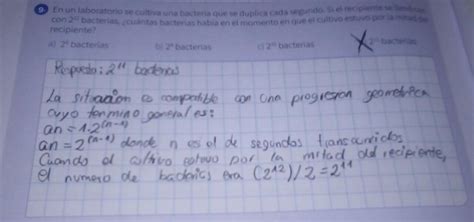 9. En un laboratorio se cultiva una bacteria que se duplica cada segundo. Si el recipiente se
con 2¹² bacterias, ¿cuántas bacterias había en el momento en que el cultivo estuvo por la mitad de
recipiente?
a) 2⁶ bacterias b) bacterias c) bacterias 2¹¹ bacterias
Respuesta: 2¹¹ bacterias
La situación es compatible con una progresion geometrica
cuyo termino general es:
an = 1·2⁽ⁿ⁻¹⁾
an = 2⁽ⁿ⁻¹⁾ donde n es el de segundos transcurridos.
Cuando el cultivo estuvo por la mitad del recipiente,
el numero de bacterias era (2¹²)/2 = 2¹¹